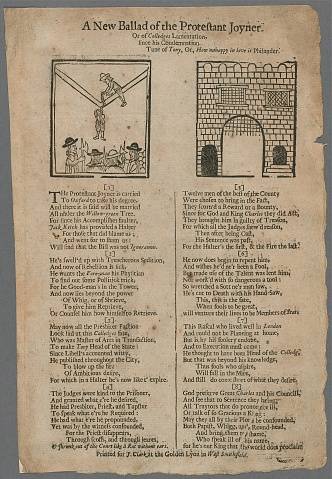 A New Ballad of the Protestant Joyner.
Or of Colledges Lamentation,
since his Condemnation.
Tune of Tory, Or, How unhappy in love is Philander.
[1]
THe Protestant Joyner is carried
To Oxford to take his degree,
And there it is said will be married
All under the Willow-green Tree.
For since his Accomplishes faulter,
Jack Ketch has provided a Halter
For those that did
And went for to
Will find that the Bill was not Ignoramus.
[2]
He's swell'd up with Treacherous Spleen,
And now of Rebellion is sick,
He wants the European his Physitian
To find out some Politick trick,
For he Good-man's in the Towre,
And now lies beyond the power
Of Whig, or of Shrieve,
To give him Reprieve,
Or Counsel him how himself to Retrieve.
[3]
May now all the Presbiter Faction
Look sad at this Colledges fate,
Who was Master of Arts in Transaction,
To make Two Head of the State:
Since Libell's accounted witty,
He published throughout the City,
To blow up the fire
Of Ambitious desire,
For which in a Halter he's now like t'expire.
[4]
The Judges were kind to the Prisoner,
And granted what e're he desired,
He had Presbiter, Priest, and Tapster
To speak what e're he Required:
He had what e're he propounded,
Yet was by the witness confounded,
For the Priest disappears,
Through scoffs, and through jeares,
[5]
Twelve men of the best of the County
Were chosen to bring in the Fact,
They scorned a Reward or a Bounty,
Since for God and King Charles they did Act,
They brought him in guilty of Treason,
For which all the Judges shew'd reason,
Then after being Cast,
His Sentence was past,
For the Halter's the first, & the Fire the last.
[6]
He now does begin to repent him,
And wishes he'd been a Fool,
But made use of the Talent was lent him,
Nor work'd with so dangerous a tool:
So wretched a Sott ne'r was saw,
He's cut to Death with his Hand-Saw,
This, this is the fate,
When fools to be great,
will venture their lives to be Members of State
[7]
This Rascal who lived well by London
And could not be Planing at home,
But is by his folly undone,
And to Execution must come:
He thought to have been Head of the Colledge,
But that was beyond his knowledge,
Thus fools who aspire,
Will fall in the Mire,
And still do come short of what they desire.
[8]
God preserve Great Charles and his Council,
And for that to Sentence they bring,
All Traytors that do promote ill,
Or talk of so Gracious a King:
May they all by their Plots be confounded,
Both Papist, Whigg, up', Round-head,
And bring them to shame,
Who speak ill of his name,
Printed for J. Clark, at the Golden Lyon in West Smithfield.